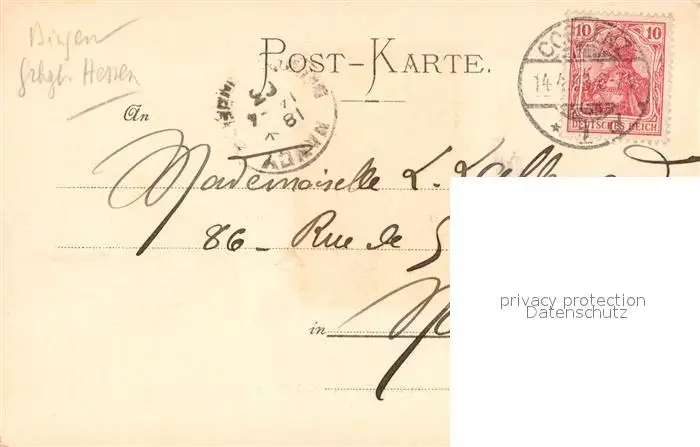 Bingen
Grhzgt. Hessen
POST-KARTE.
10 10
DEUTSCHES REICH
An
NANCY
Mademoiselle L.
86 - Rue de
in
privacy protection
Datenschutz